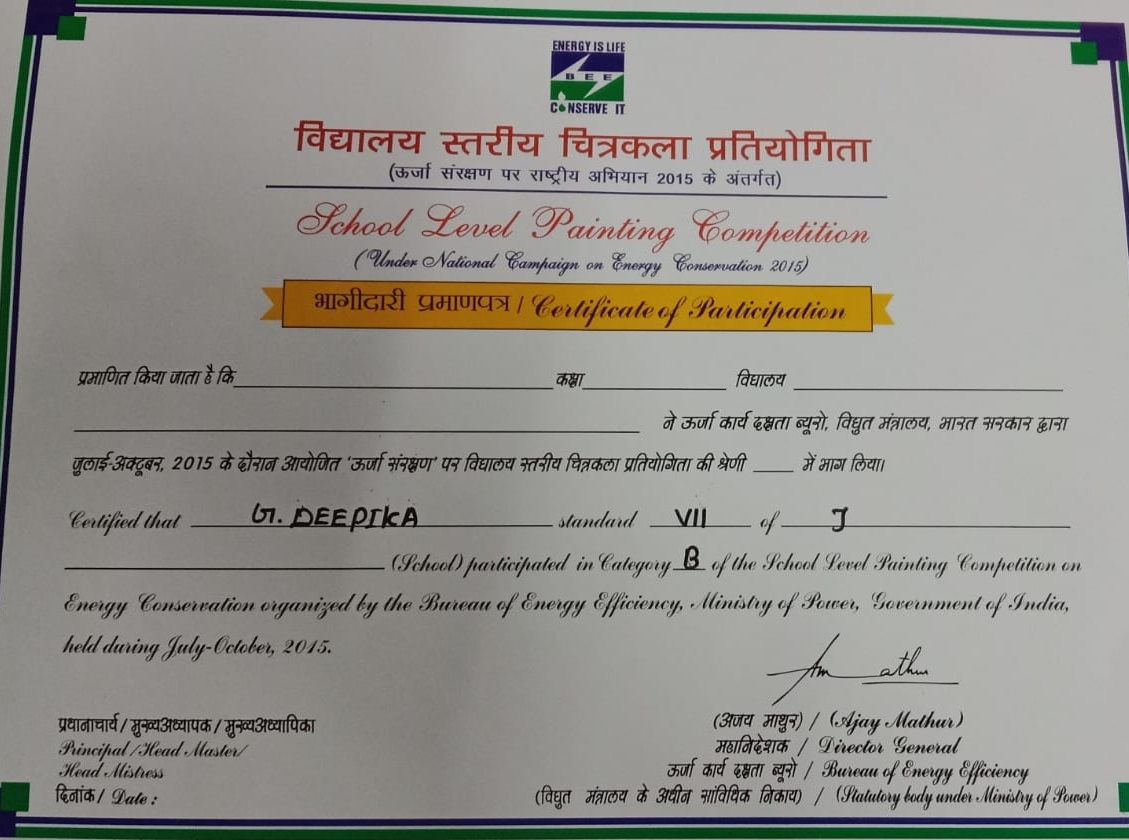 ENERGY IS LIFE
BEE
CONSERVE IT
विद्यालय स्तरीय चित्रकला प्रतियोगिता
(ऊर्जा संरक्षण पर राष्ट्रीय अभियान 2015 के अंतर्गत)
School Level Painting Competition
(Under National Campaign on Energy Conservation 2015)
भागीदारी प्रमाणपत्र / Certificate of Participation
प्रमाणित किया जाता है कि कक्षा विद्यालय
ने ऊर्जा कार्य दक्षता ब्यूरो, विद्युत मंत्रालय, भारत सरकार द्वारा
जुलाई-अक्टूबर, 2015 के दौरान आयोजित 'ऊर्जा संरक्षण' पर विद्यालय स्तरीय चित्रकला प्रतियोगिता की श्रेणी ____ में भाग लिया।
Certified that G. DEEPIKA standard VII of J
(School) participated in Category B of the School Level Painting Competition on
Energy Conservation organized by the Bureau of Energy Efficiency, Ministry of Power, Government of India,
held during July-October, 2015.
प्रधानाचार्य / मुख्यअध्यापक / मुख्यअध्यापिका
Principal/Head Master/
Head Mistress
दिनांक / Date :
(अजय माथुर) / (Ajay Mathur)
महानिदेशक / Director General
ऊर्जा कार्य दक्षता ब्यूरो / Bureau of Energy Efficiency
(विद्युत मंत्रालय के अधीन सांविधिक निकाय) / (Statutory body under Ministry of Power)